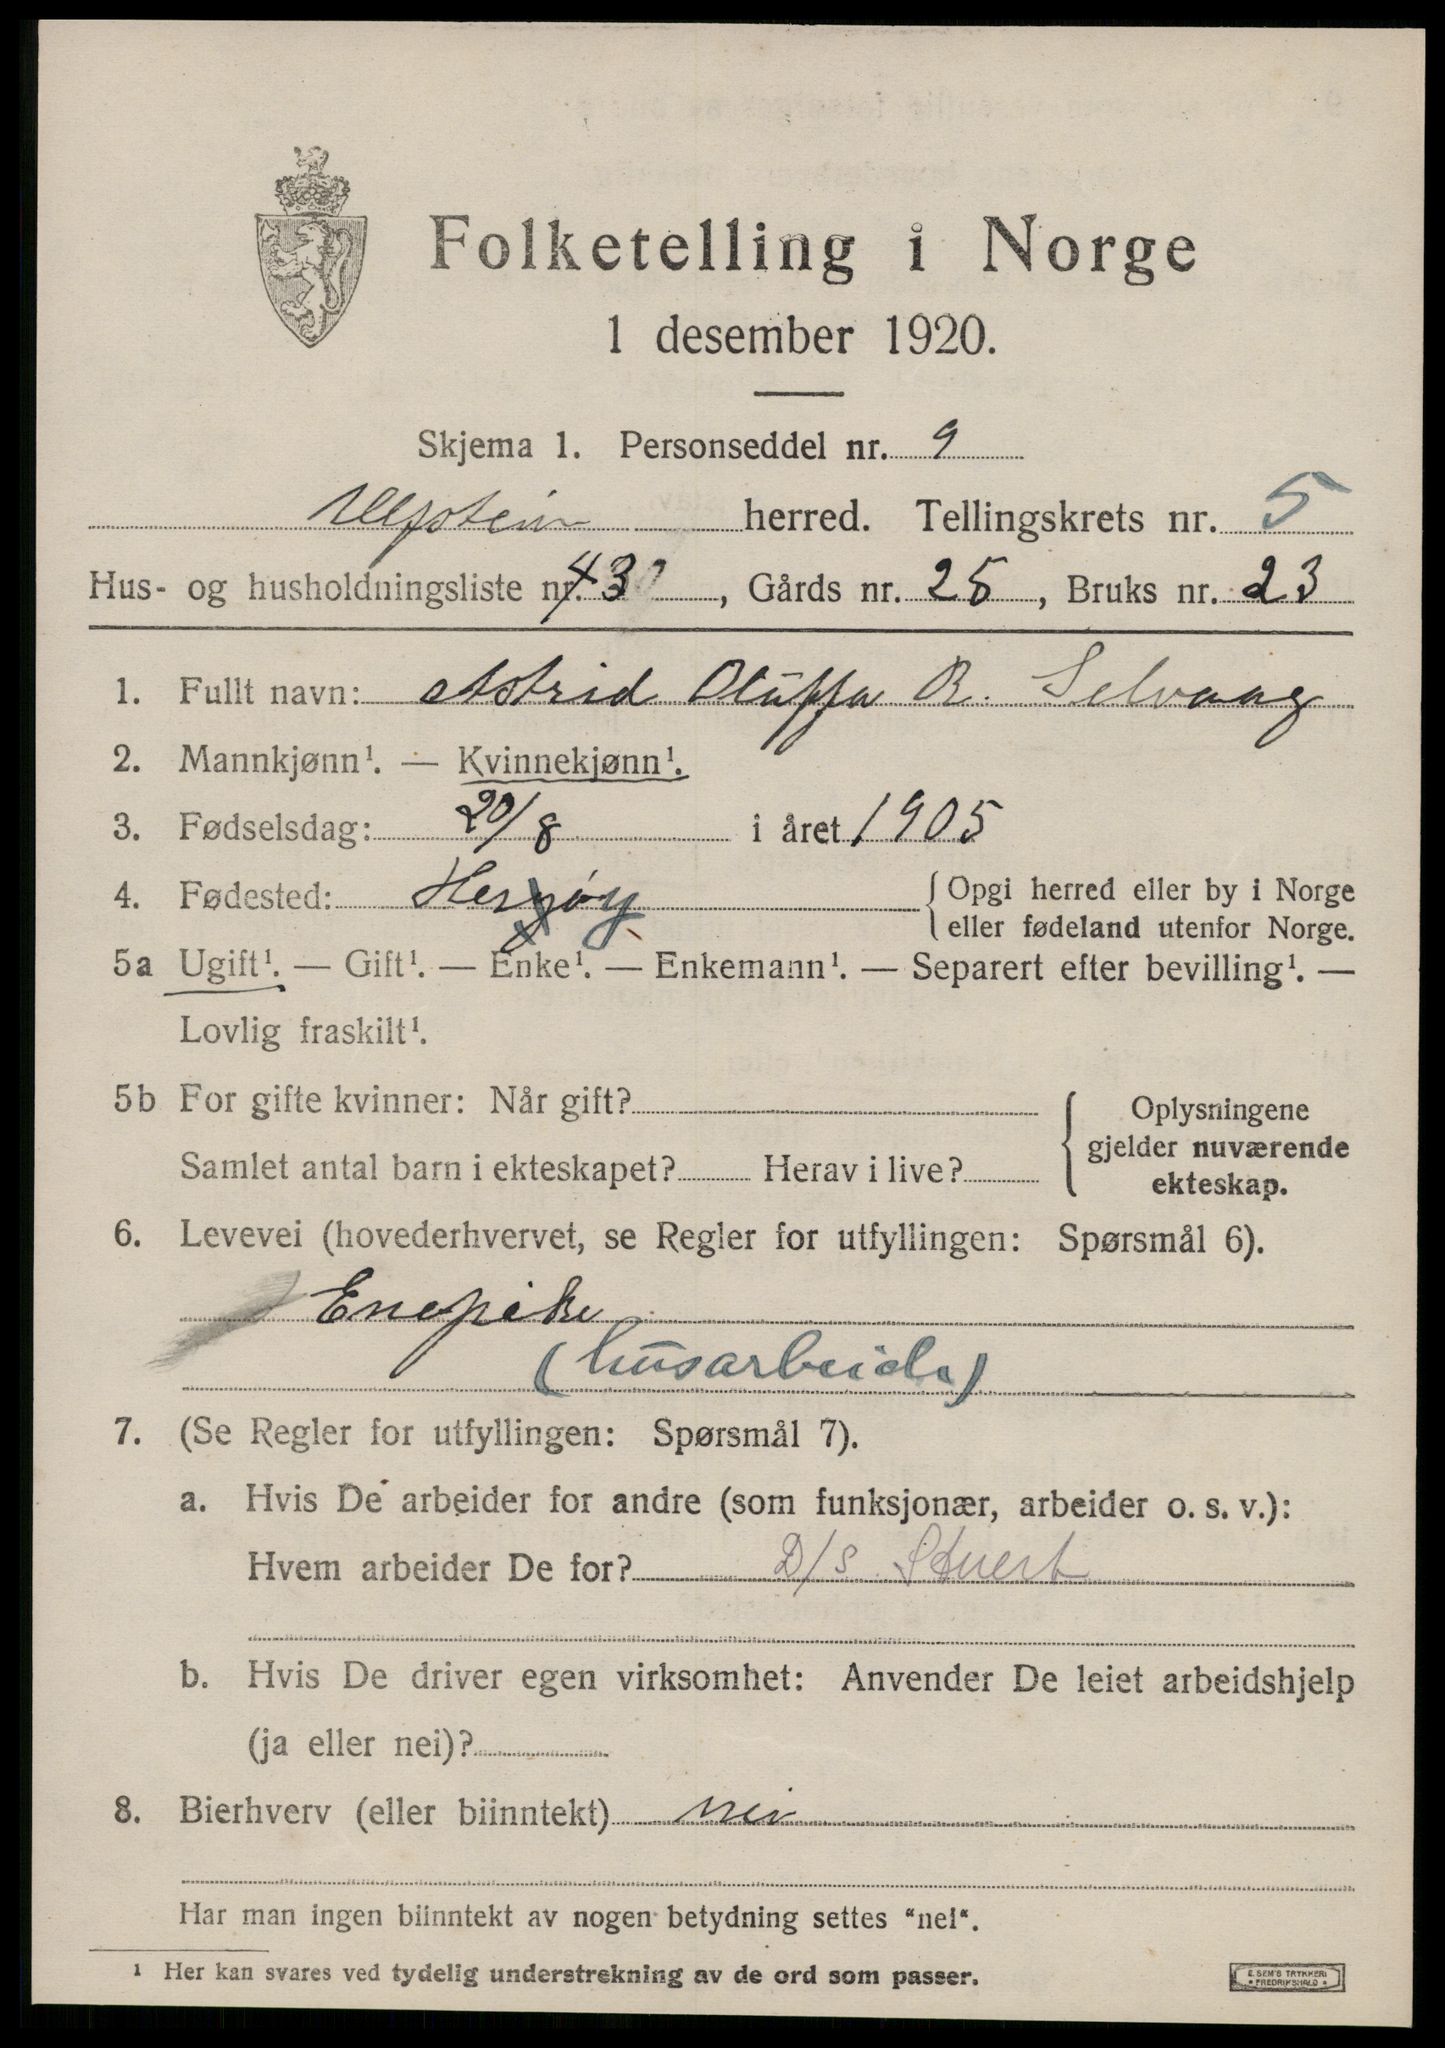 Folketelling i Norge
1 desember 1920.
Skjema 1. Personseddel nr. 9
Ulfstein herred. Tellingskrets nr. 5
Hus- og husholdningsliste nr. 43, Gårds nr. 25, Bruks nr. 23
1. Fullt navn: Astrid Oluffa R. Selvaag
2. Mannkjønn¹. — Kvinnekjønn¹.
3. Fødselsdag: 20/8 i året 1905
4. Fødested: Herøy { Opgi herred eller by i Norge
eller fødeland utenfor Norge.
5a Ugift¹. — Gift¹. — Enke¹. — Enkemann¹. — Separert efter bevilling¹. —
Lovlig fraskilt¹.
5b For gifte kvinner: Når gift? { Oplysningene
gjelder nuværende
ekteskap.
Samlet antal barn i ekteskapet? Herav i live?
6. Levevei (hovederhvervet, se Regler for utfyllingen: Spørsmål 6).
Enepike
(husarbeide)
7. (Se Regler for utfyllingen: Spørsmål 7).
a. Hvis De arbeider for andre (som funksjonær, arbeider o. s. v.):
Hvem arbeider De for? D/s
b. Hvis De driver egen virksomhet: Anvender De leiet arbeidshjelp
(ja eller nei)?
8. Bierhverv (eller biinntekt) nei
Har man ingen biinntekt av nogen betydning settes "nei".
¹ Her kan svares ved tydelig understrekning av de ord som passer.
E. SEM'S TRYKKERI
• FREDRIKSHALD •